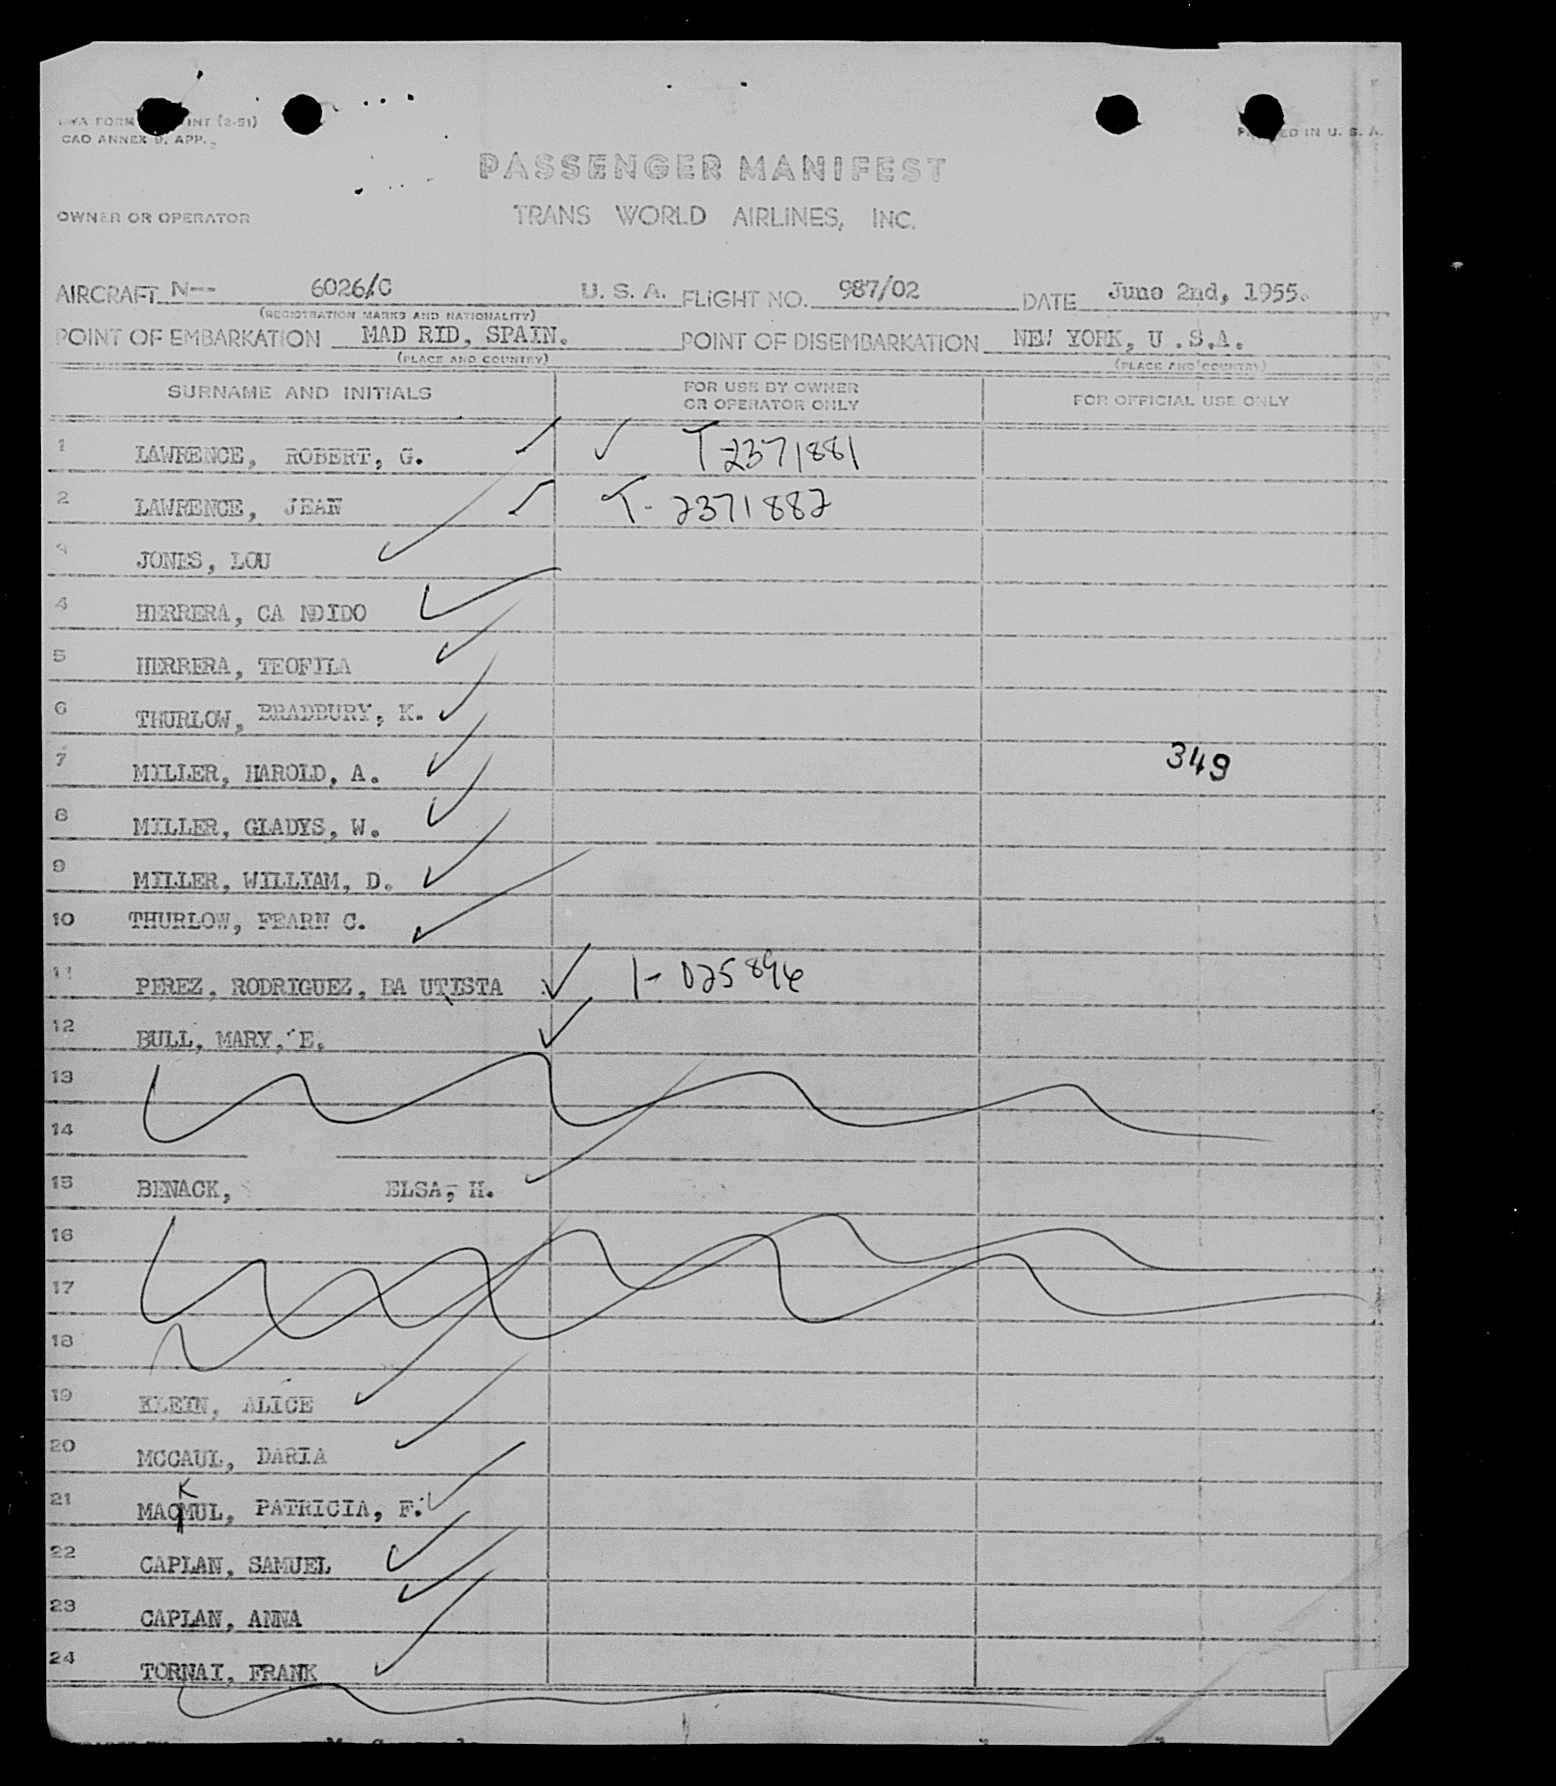 FORM INT (2-51)
CAO ANNEX 9, APP. 2
PRINTED IN U. S. A.
PASSENGER MANIFEST
OWNER OR OPERATOR TRANS WORLD AIRLINES, INC.
AIRCRAFT N-- 6026/C U. S. A. FLIGHT NO. 987/02 DATE June 2nd, 1955.
(REGISTRATION MARKS AND NATIONALITY)
POINT OF EMBARKATION MAD RID, SPAIN. POINT OF DISEMBARKATION NEW YORK, U .S.A.
(PLACE AND COUNTRY) (PLACE AND COUNTRY)
SURNAME AND INITIALS FOR USE BY OWNER OR OPERATOR ONLY FOR OFFICIAL USE ONLY
1 LAWRENCE, ROBERT, G. T-2371881
2 LAWRENCE, JEAN T-2371882
3 JONES, LOU
4 HERRERA, CA NDIDO
5 HERRERA, TEOFILA
6 THURLOW, BRADBURY, K.
7 MILLER, HAROLD, A. 349
8 MILLER, GLADYS, W.
9 MILLER, WILLIAM, D.
10 THURLOW, FEARN C.
11 PEREZ, RODRIGUEZ, BA UTISTA 1-025896
12 BULL, MARY, E.
13
14
15 BENACK, ELSA, H.
16
17
18
19 KLEIN, ALICE
20 MCCAUL, DARIA
21 MACMUL, PATRICIA, F.
K
22 CAPLAN, SAMUEL
23 CAPLAN, ANNA
24 TORNAI, FRANK